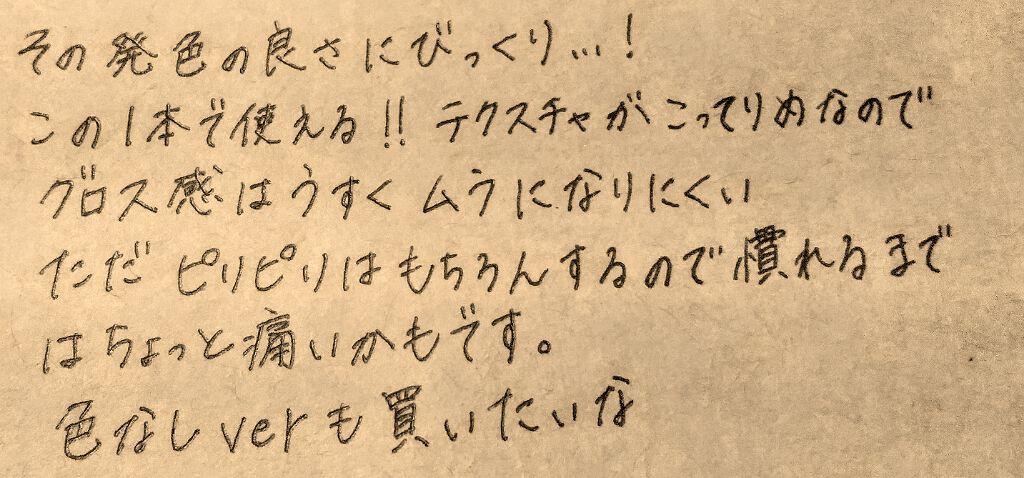 その発色の良さにびっくり…!
この1本で使える!! テクスチャがこってりめなので
グロス感はうすくムラになりにくい
ただピリピリはもちろんするので慣れるまで
はちょっと痛いかもです。
色なしverも買いたいな